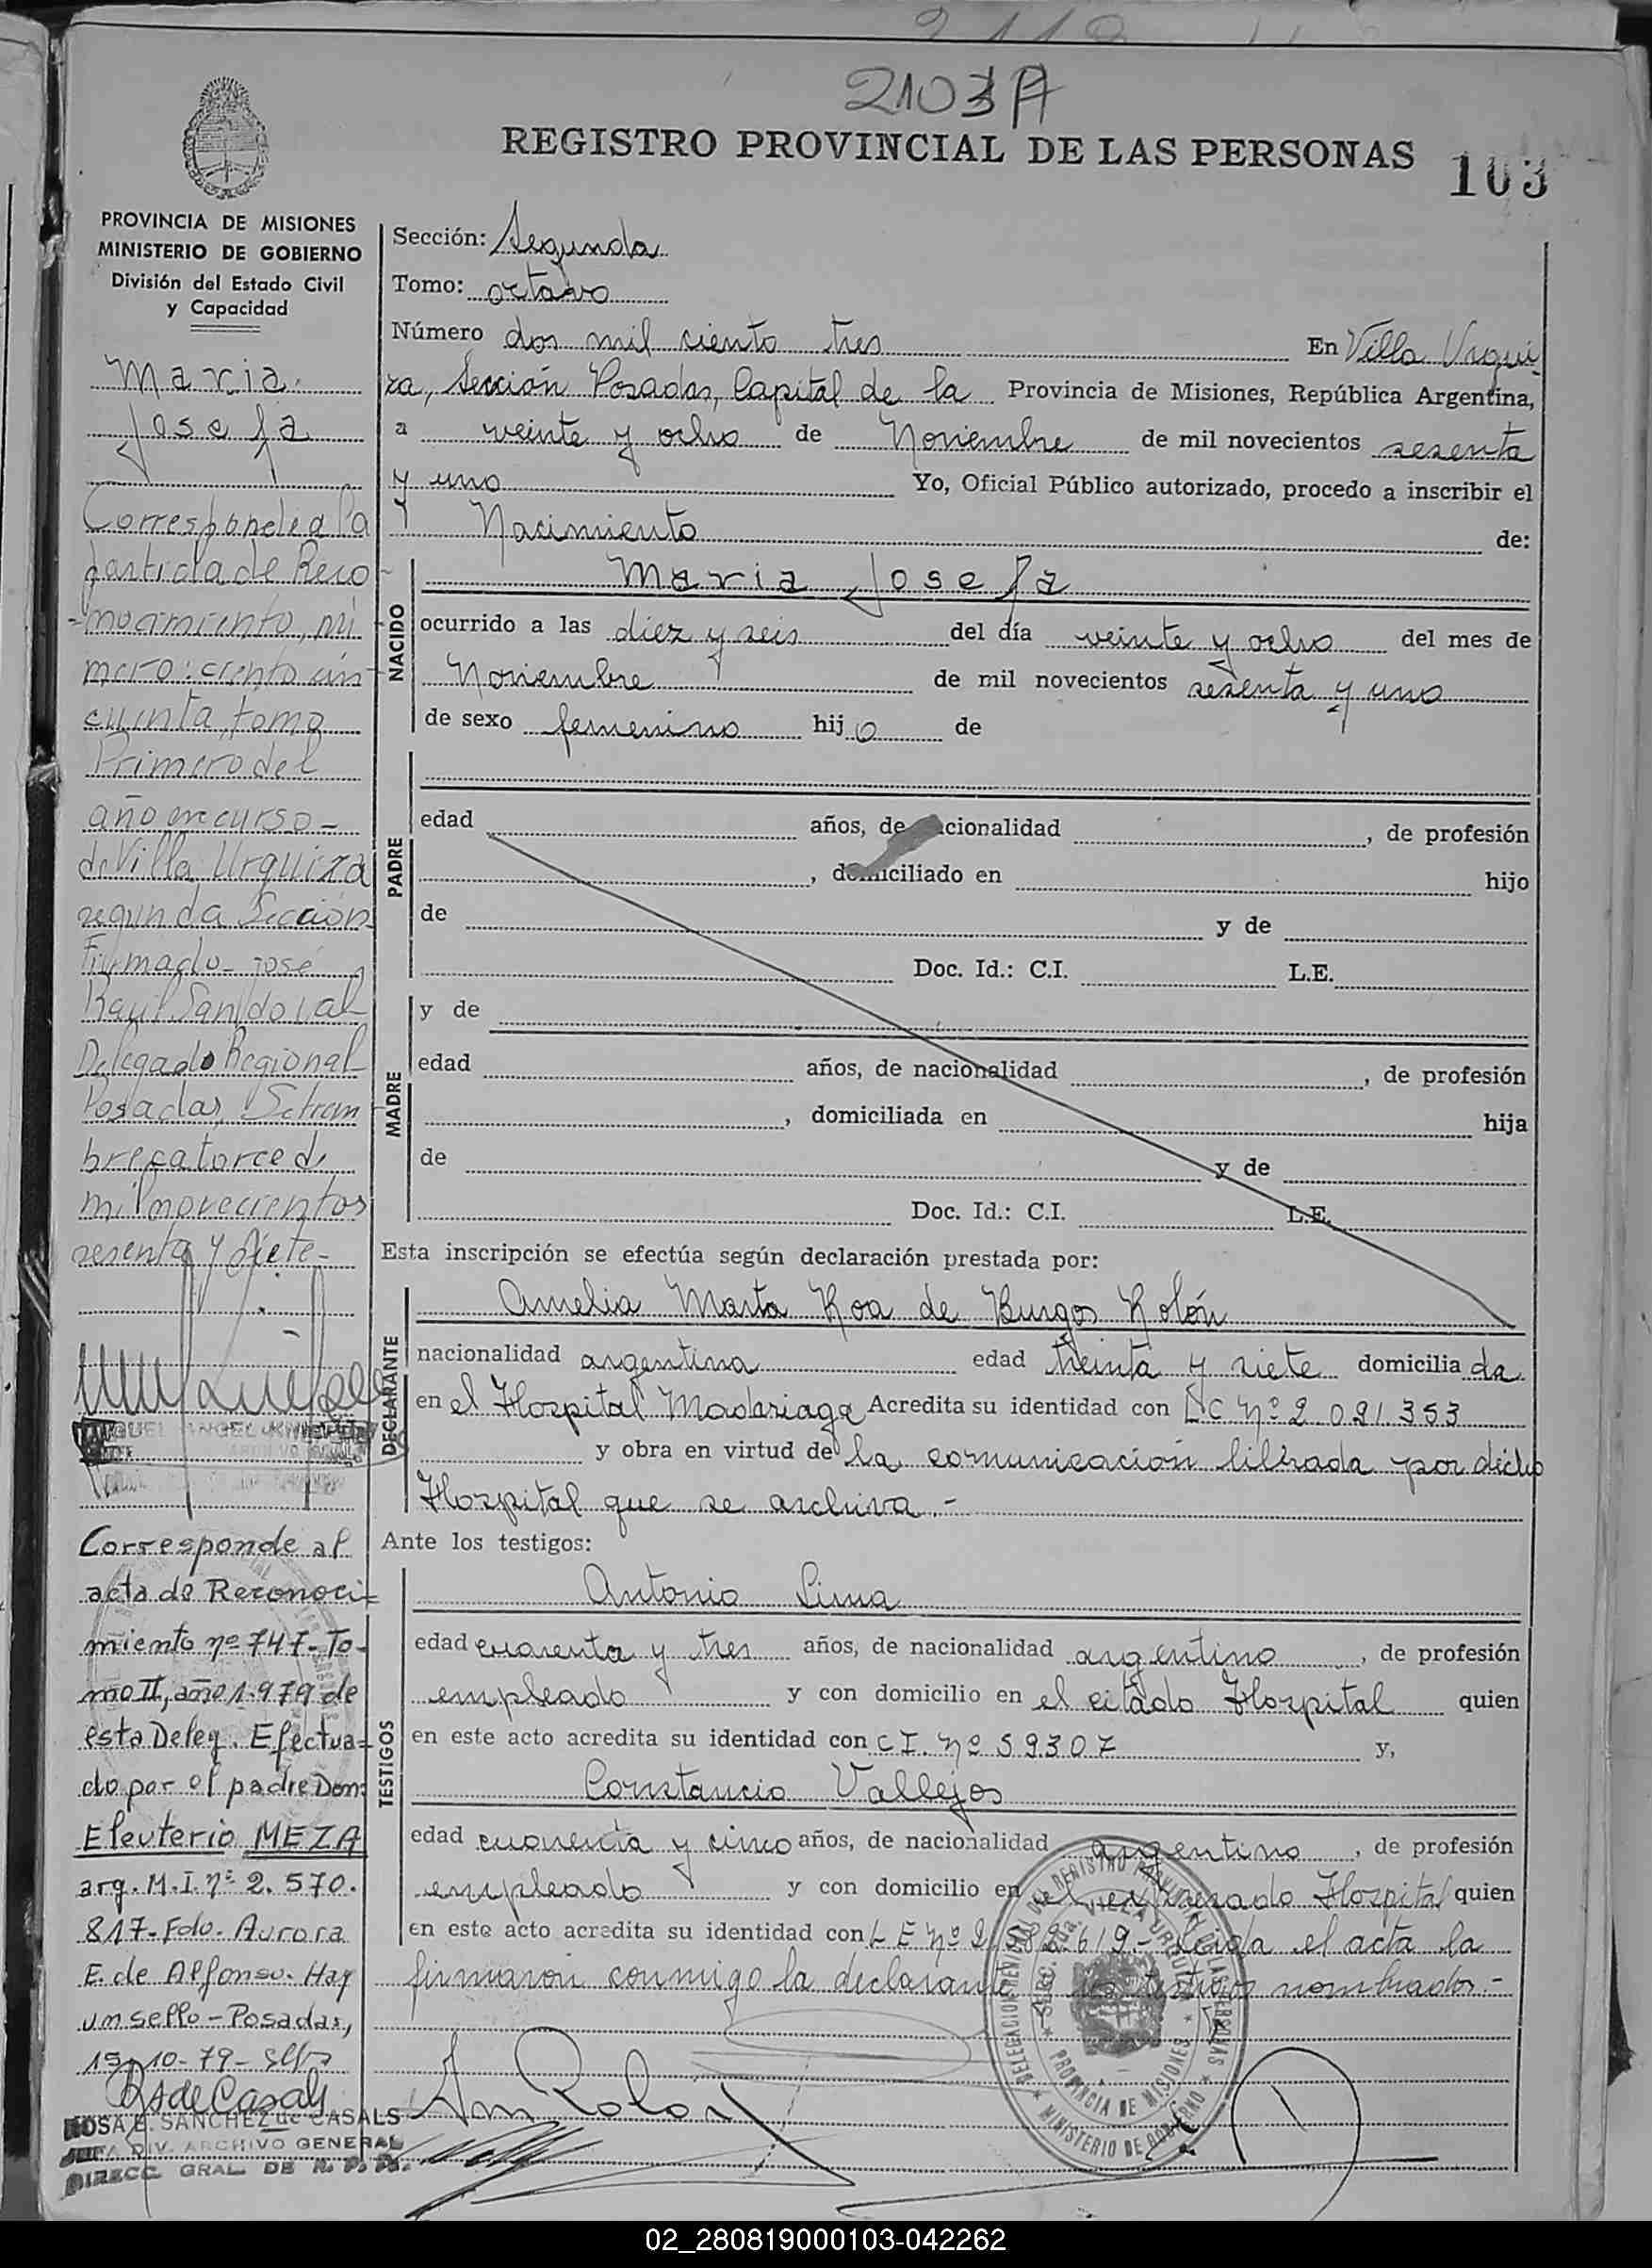 2103 A
REGISTRO PROVINCIAL DE LAS PERSONAS
103
PROVINCIA DE MISIONES
MINISTERIO DE GOBIERNO
División del Estado Civil
y Capacidad
Maria
Josefa
Corresponde a la
partida de Reco-
-nocimiento, nú
mero: ciento cin
cuenta, tomo
Primero del
año en curso-
de Villa Urquiza
segunda Sección
Firmado- José
Raul Sandoval
Delegado Regional
Posadas, Setiem
bre catorce de
mil novecientos
sesenta y siete-
Corresponde al
acta de Reconoci-
miento nº 747- To-
mo II, año 1.979 de
esta Deleg. Efectua-
do por el padre Don:
Eleuterio MEZA
arg. M.I. nº 2.570.
817- Fdo. Aurora
E. de Alfonso. Hay
un sello- Posadas,
15-10-79-
ROSA E. SANCHEZ de CASALS
JEFA DIV. ARCHIVO GENERAL
DIRECC. GRAL. DE R. P. P.
Sección: Segunda
Tomo: octavo
Número dos mil ciento tres En Villa Urqui-
za, Sección Posadas, Capital de la Provincia de Misiones, República Argentina,
a veinte y ocho de Noviembre de mil novecientos sesenta
y uno Yo, Oficial Público autorizado, procedo a inscribir el
Nacimiento de:
NACIDO
Maria Josefa
ocurrido a las diez y seis del día veinte y ocho del mes de
Noviembre de mil novecientos sesenta y uno
de sexo femenino hijo de
PADRE
edad años, de nacionalidad , de profesión
, domiciliado en hijo
de y de
Doc. Id.: C.I. L.E.
MADRE
y de
edad años, de nacionalidad , de profesión
, domiciliada en hija
de y de
Doc. Id.: C.I. L.E.
Esta inscripción se efectúa según declaración prestada por:
DECLARANTE
Amelia Marta Roa de Burgos Rolón
nacionalidad argentina edad treinta y siete domiciliada
en el Hospital Madariaga Acredita su identidad con LC nº 2 021 353
y obra en virtud de la comunicación librada por dicho
Hospital que se archiva.-
Ante los testigos:
TESTIGOS
Antonio Lima
edad cuarenta y tres años, de nacionalidad argentino , de profesión
empleado y con domicilio en el citado Hospital quien
en este acto acredita su identidad con C I. nº 59.307 y,
Constancio Vallejos
edad cuarenta y cinco años, de nacionalidad argentino , de profesión
empleado y con domicilio en el expresado Hospital quien
en este acto acredita su identidad con L E nº 619.- Leida el acta la
firmaron conmigo la declarante los testigos nombrados.-
PROVINCIA DE MISIONES
MINISTERIO DE GOBIERNO
02_280819000103-042262